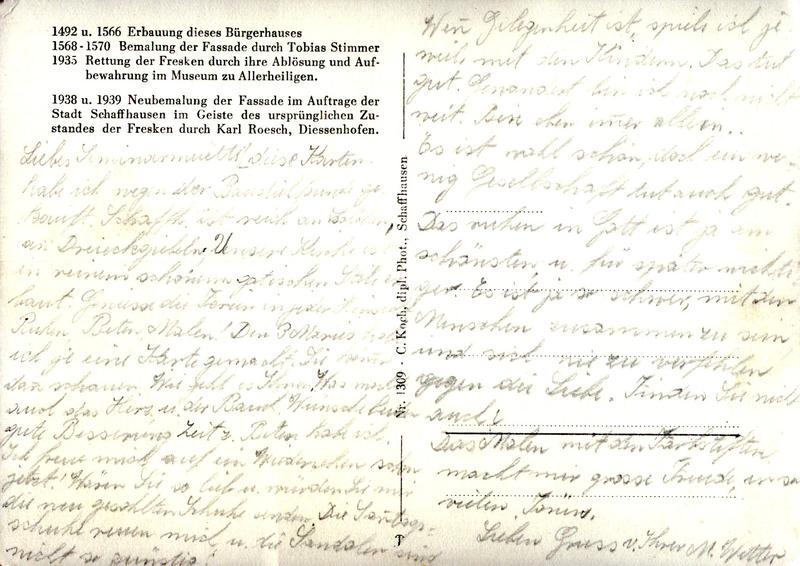 1492 u. 1566 Erbauung dieses Bürgerhauses
1568-1570 Bemalung der Fassade durch Tobias Stimmer
1935 Rettung der Fresken durch ihre Ablösung und Auf-
bewahrung im Museum zu Allerheiligen.
1938 u. 1939 Neubemalung der Fassade im Auftrage der
Stadt Schaffhausen im Geiste des ursprünglichen Zu-
standes der Fresken durch Karl Roesch, Diessenhofen.
Liebes diese Karten
habe ich wegen ge
kauft. Schaffh. ist reich an
an Dreieckgiebeln. Unsere Kirche ist
in reinem schönem gotischen Stile er
baut. Geniesse die Ferien in
Ruhen, Beten, Malen! Den 3 Maries
ich je eine Karte gemacht. Sie
dazu schauen. Was fehlt es Ihnen? Was macht
auch das Herz u. der Wünsche Ihnen
gute Besserung. Zeit z. Ruhen habe ich.
Ich freue mich auf ein Wiedersehen schon
jetzt! Wären Sie so lieb u. würden Sie mir
die neu gesohlten Schuhe senden. Die
schuhe reuen mich u. die Sandalen sind
nicht so günstig!
Nr. 1309 - C. Koch, dipl. Phot., Schaffhausen
Wenn Gelegenheit ist, spiele ich je
weils mit den Kindern. Das tut
gut. bin ich noch nicht
weit. Bin eben immer allein..
Es ist wohl schön, doch ein we-
nig Gesellschaft tut auch gut.
Das ruhen in Gott ist ja am
schönsten u. für später wichti
ger. Es ist ja so schwer, mit den
Menschen zusammen zu sein
und sich nie zu verfehlen
gegen die Liebe. Finden Sie nicht
auch?
Das Malen mit den Farbstiften
macht mir grosse Freude, in so
vielen Tönen.
Lieben Gruss v. Ihrer M. Wetter